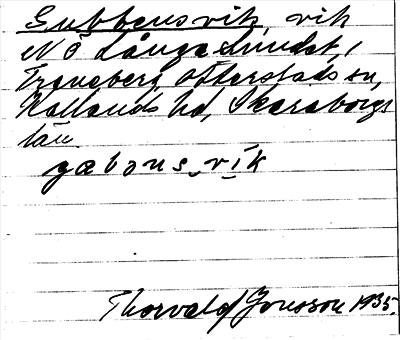 Gubbens vik, vik
NÖ Långa Lundat, i
Traneberg, Otterstads sn,
Kållands hd, Skaraborgs
län.
gɶbɔns_vīk
Thorvald Jonsson 1935.